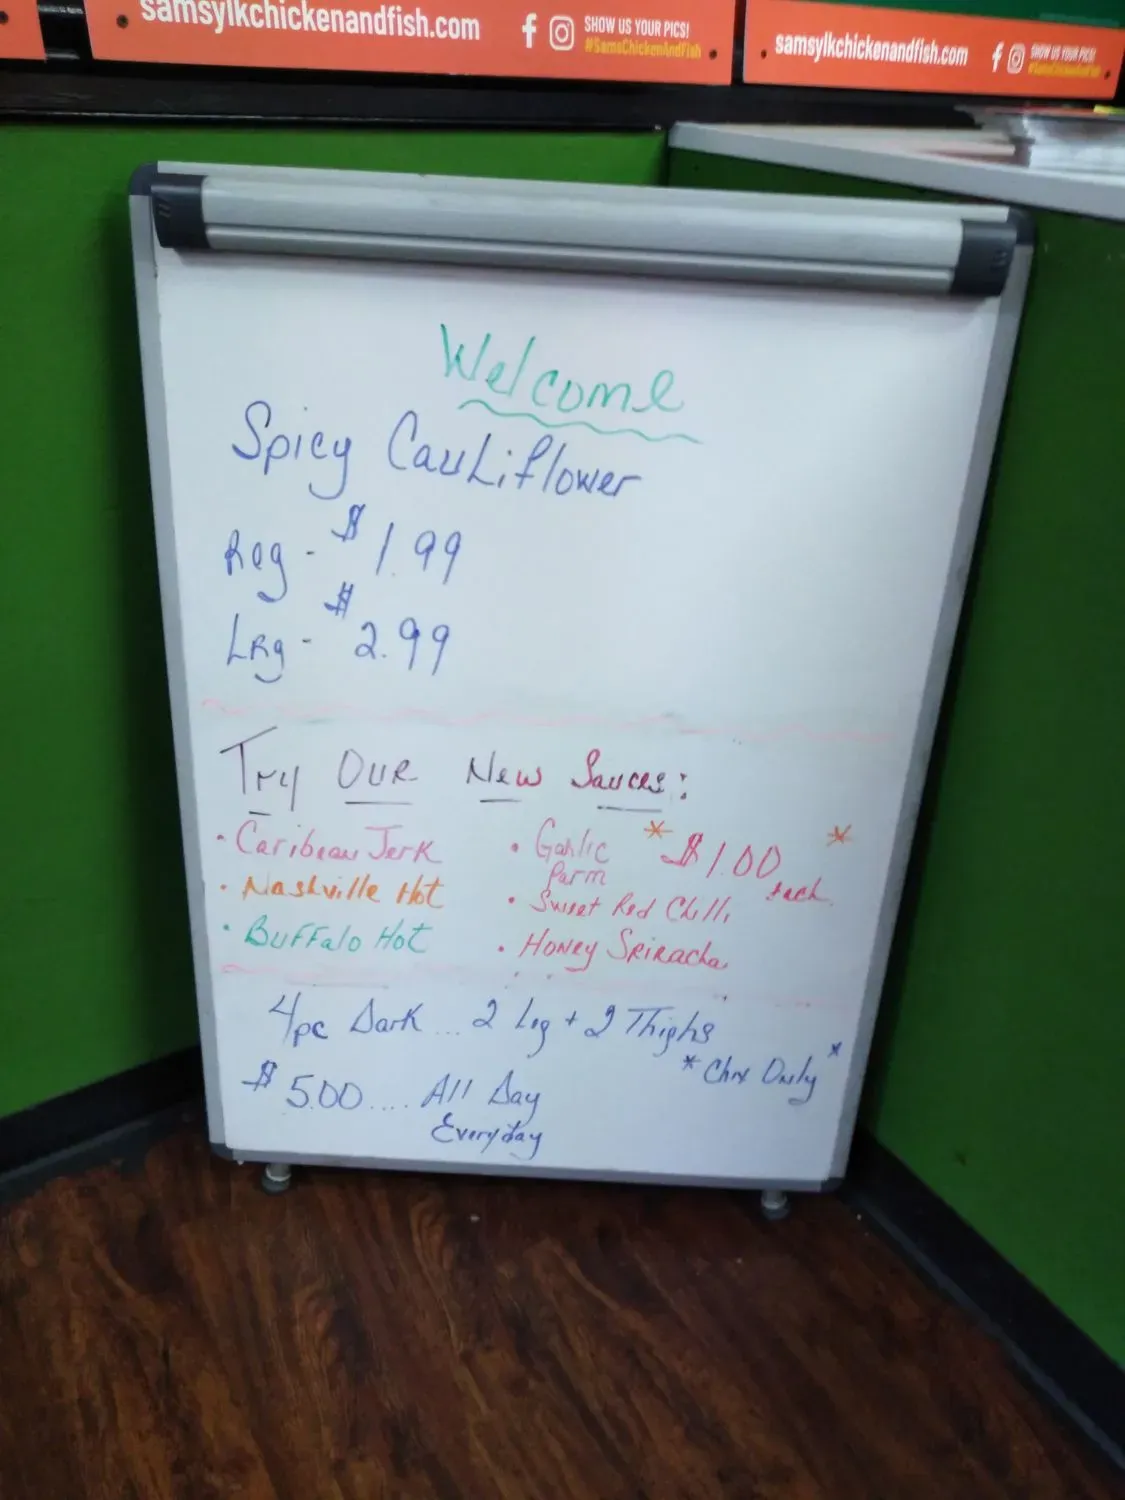 samsylkchickenandfish.com
SHOW US YOUR PICS!
#SamsChickenAndFish
samsylkchickenandfish.com
SHOW US YOUR PICS!
#SamsChickenAndFish
Welcome
Spicy Cauliflower
Reg - $1.99
Lrg - $2.99
Try Our New Sauces:
• Caribean Jerk
• Garlic Parm
* $1.00 each *
• Nashville Hot
• Sweet Red Chili
• Buffalo Hot
• Honey Sriracha
4pc Dark ... 2 Leg + 2 Thighs
* Chix Only *
$5.00 .... All Day
Everyday